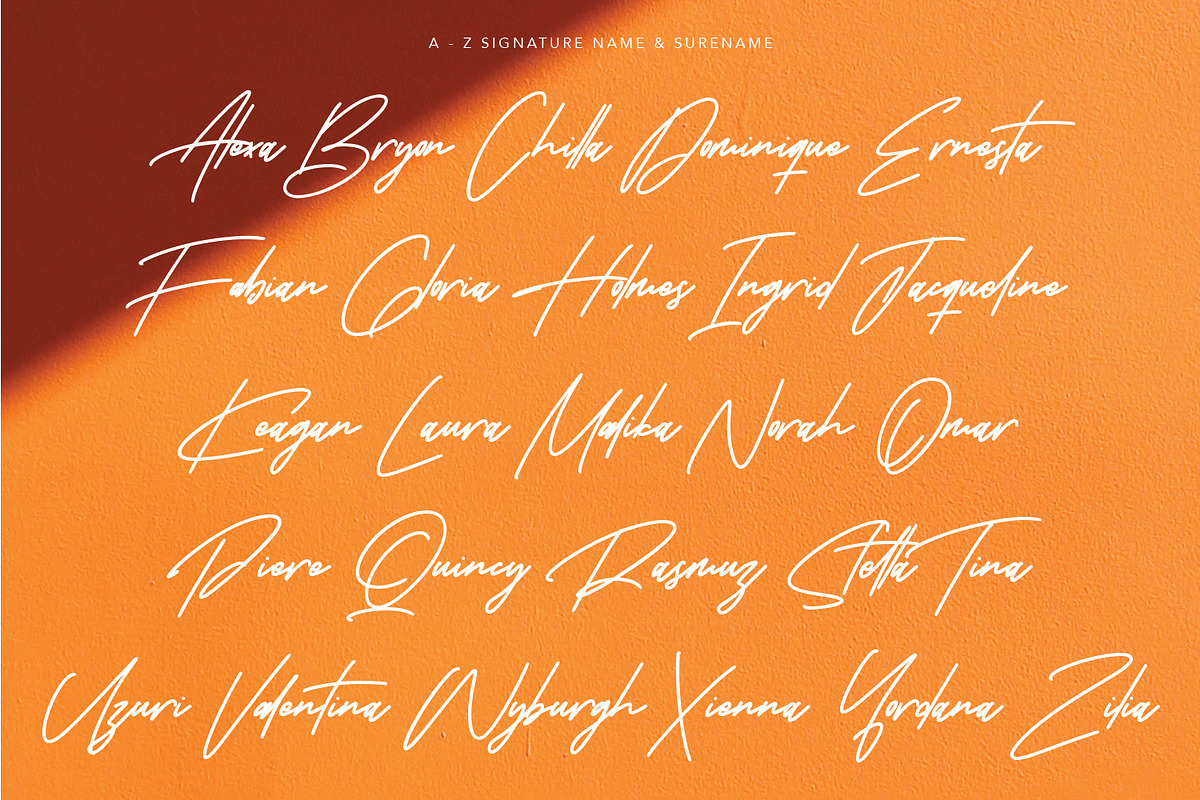 A - Z SIGNATURE NAME & SURENAME
Alexa Bryon Chilla Dominique Ernesta
Fabian Gloria Holmes Ingrid Jacqueline
Keagan Laura Malika Norah Omar
Piere Quincy Rasmuz Stella Tina
Uzuri Valentina Wyburgh Xienna Yordana Zilia